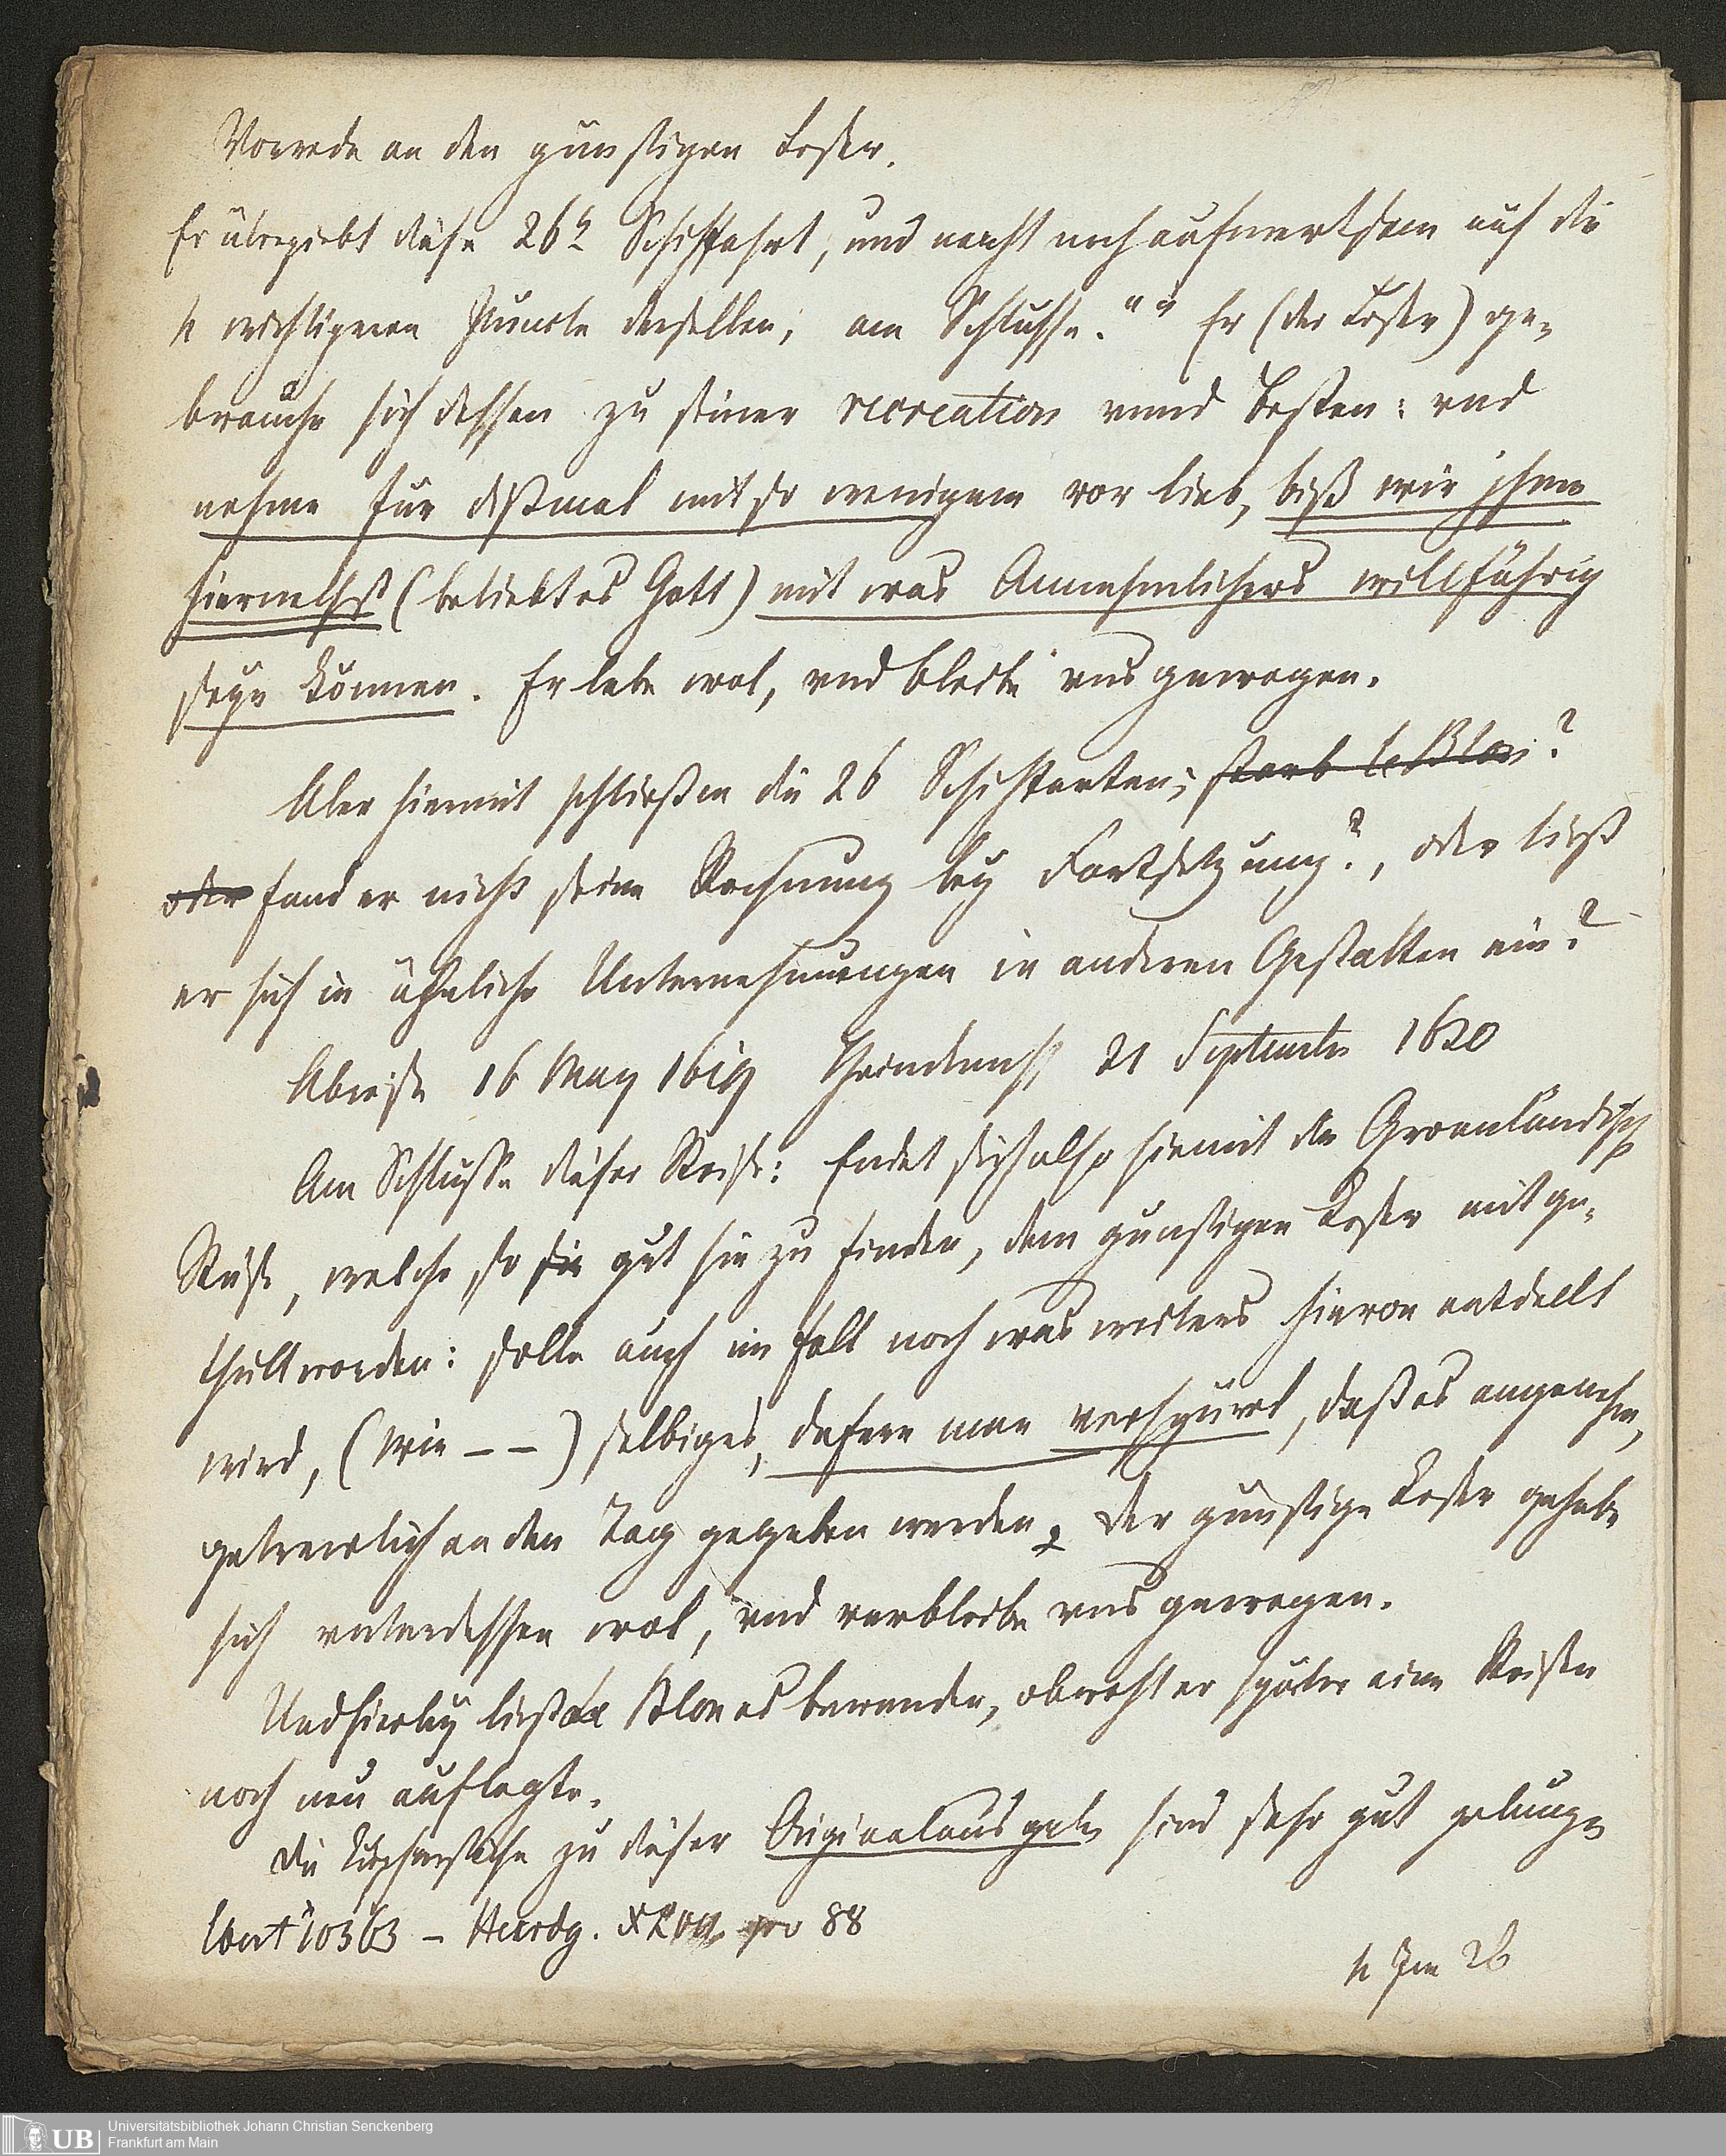 Vorrede an den günstigen Leser.
Er übergiebt diese 26e Schiffahrt, und macht noch aufmerksam auf die
4 wichtigeren Puncte derselben; am Schlusse. "" Er (der Leser) ge-
brauche sich dessen zu seiner recreation vnnd Besten: vnd
nehme für dißmal mit so wenigem vor lieb, biß wir jhme
hiernechst (beliebt es Gott) mit was Annehmlichers willfährig
seyn können. Er lebe wol, vnd bleibe vns gewogen.
Aber hiermit schließen die 26 Schiffarten; starb le Blon?
oder fand er nicht seine Rechnung bey Fortsetzung?, oder ließ
er sich in ähnliche Unternehmungen in anderen Gestalten ein?
Abreise 16 May 1619 21 September 1620
Am Schlusse dieser Reise: Endet sich also hiemit die Groenländisch
Reise, welche so sie gut sie zu finden, dem günstigen Leser mitge-
theilt worden: solle auch im fall noch was weiters hievon entdeckt
wird, (wie – –) selbiges, dafern man verspüret, daß es angenehm,
getrewlich an den Tag gegeben werden. Der günstige Leser gehabe
sich vnterdessen wol, vnd verbleibe vns gewogen.
Und hierbey ließ le Blon es bewenden, obwohl er später eine Reisen
noch neu auflegte.
Die Kupferstiche zu dieser Originalausgabe sind sehr gut gelungen
Ebert 10363 – 88
4 Jun 26
Universitätsbibliothek Johann Christian Senckenberg
Frankfurt am Main
UB